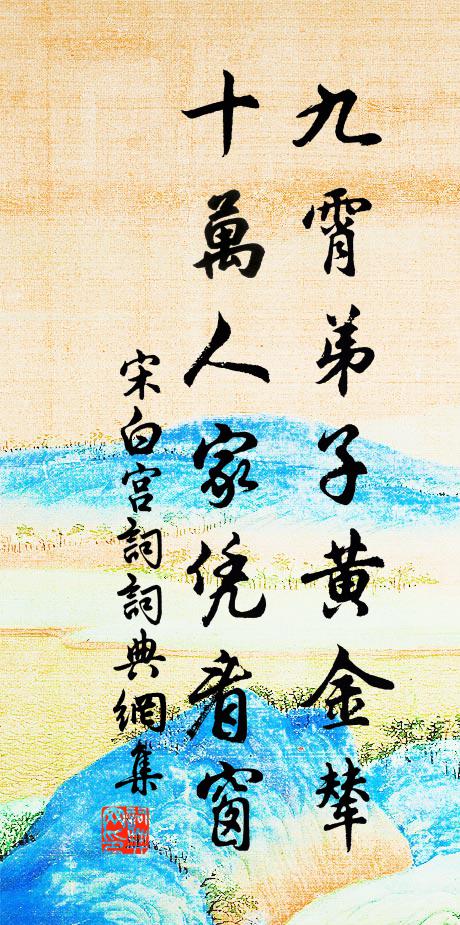 九霄弟子黄金輦
十萬人家凭看窗
宋白宫詞詞典網集